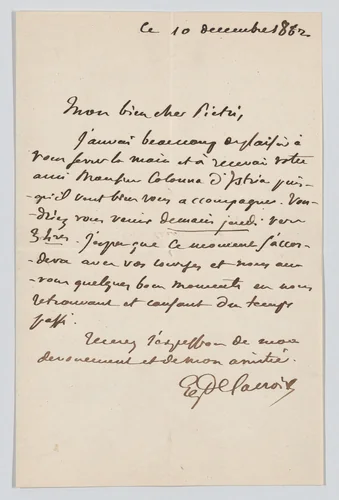 ce 10 decembre 1862
Mon bien cher Pietri,
J'aurai beaucoup de plaisir à
vous serrer la main et à recevoir votre
ami Monsieur Colonna d'Istria puis-
qu'il veut bien vous accompagner. Vou-
driez vous venir demain jeudi vers
3 hres. J'espere que ce moment s'accor-
dera avec vos courses et nous au-
rons quelques bons moments en nous
retrouvant et causant du temps
passé.
Recevez l'expression de mon
devouement et de mon amitié.
EDelacroix